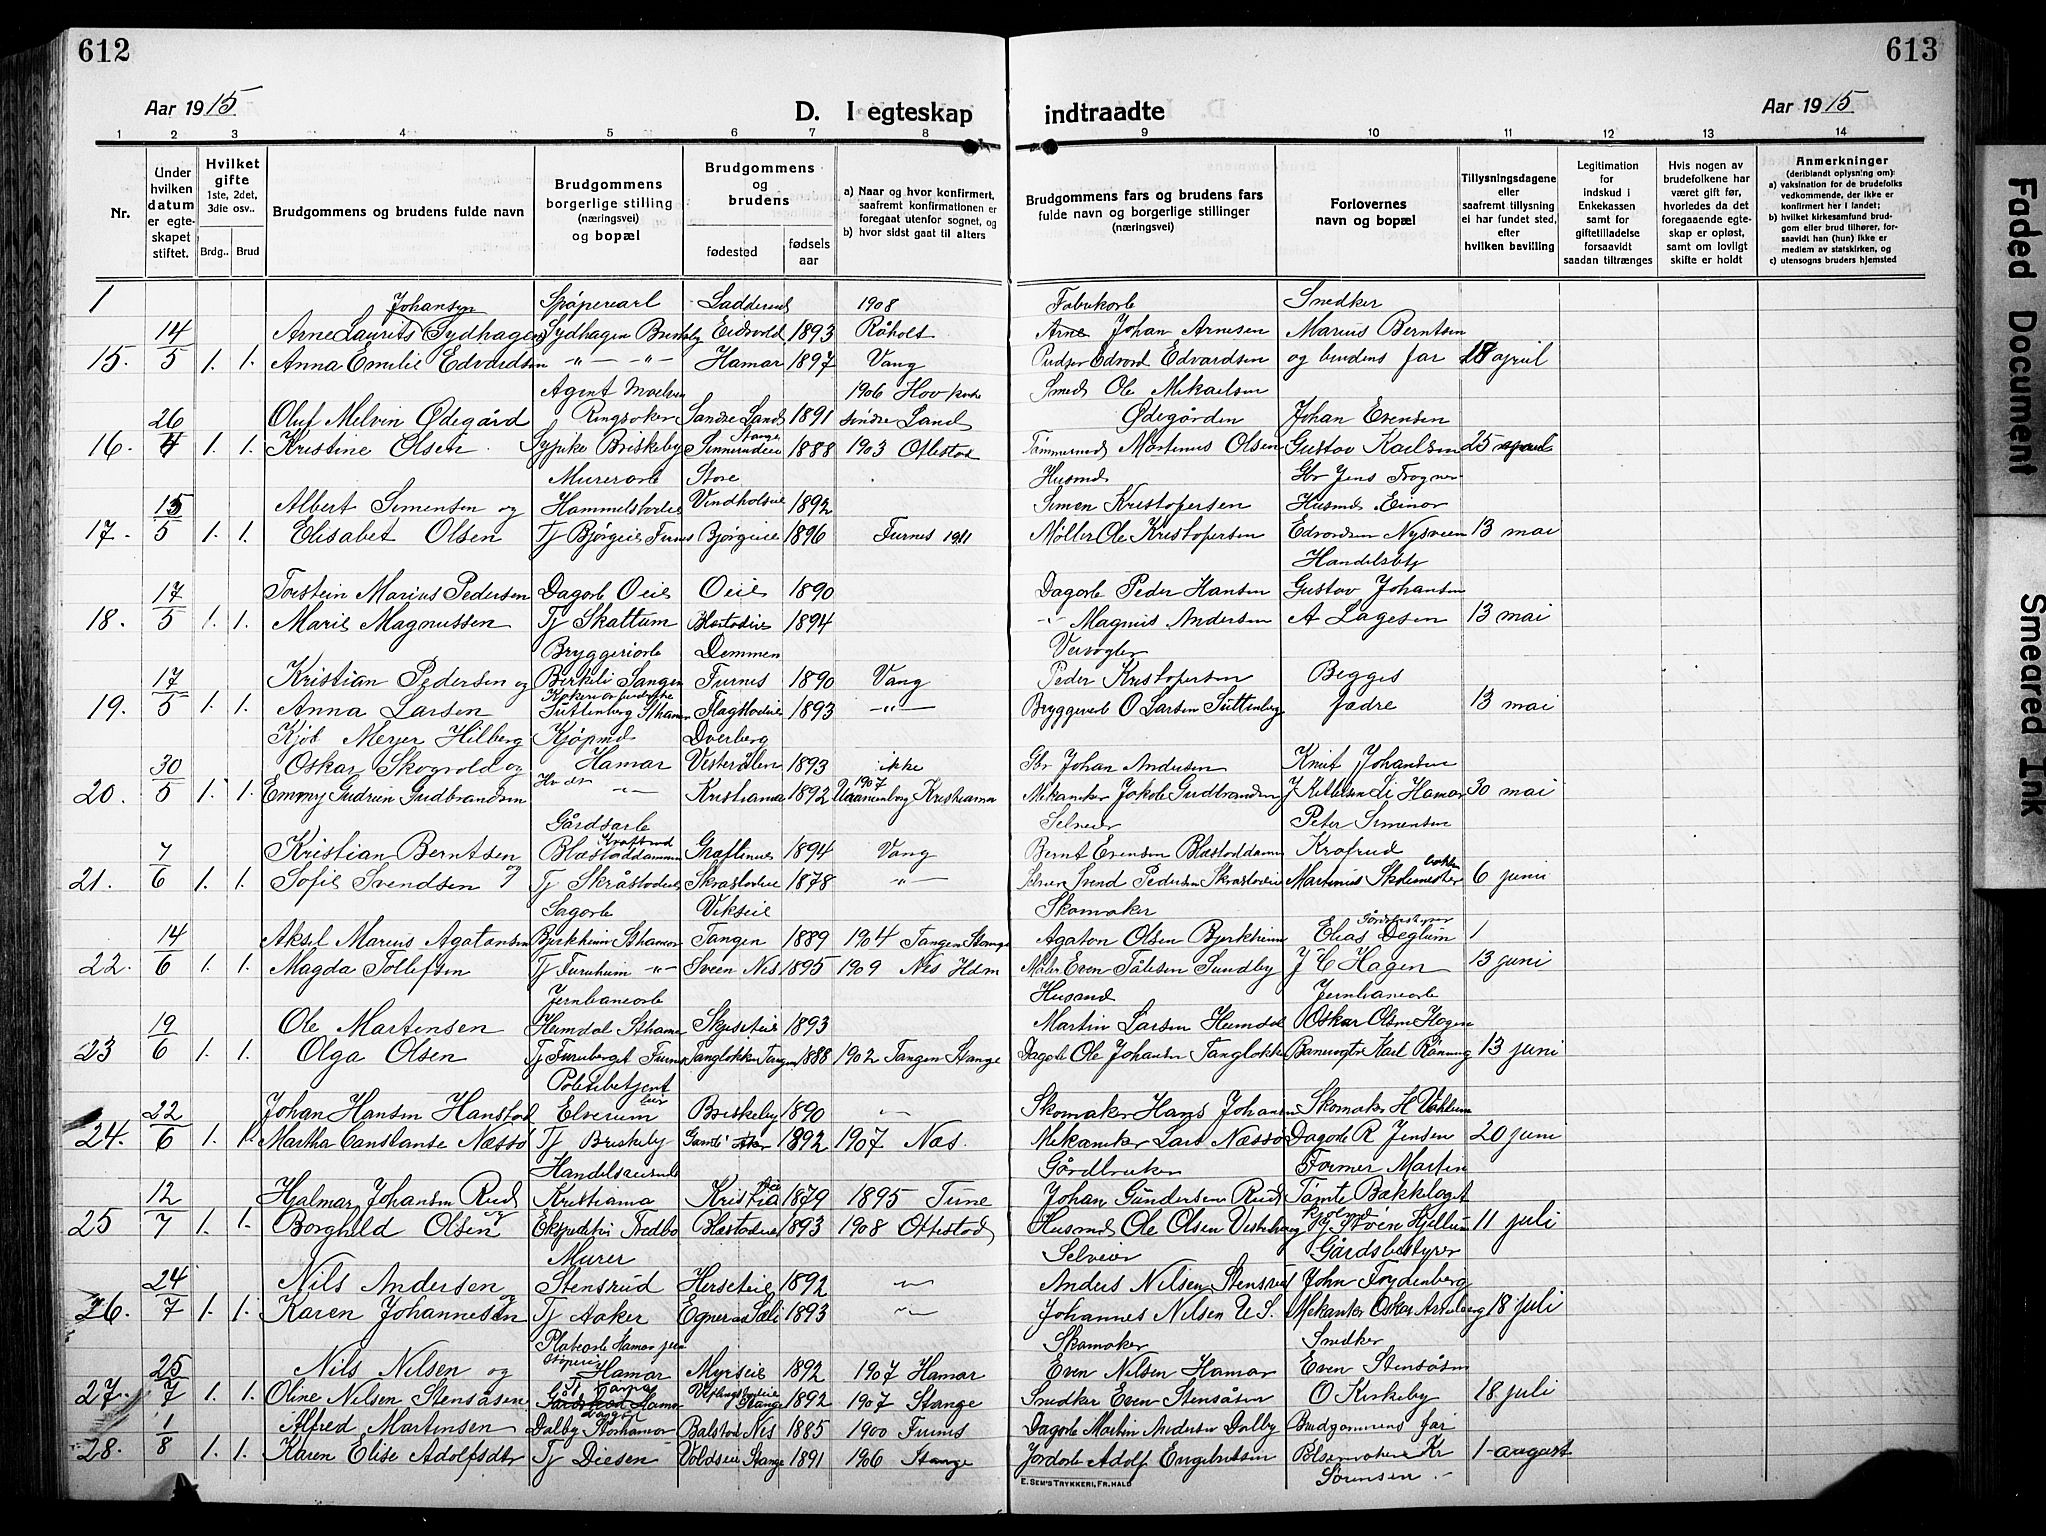 612
613
Aar 1915
D. I egteskap
indtraadte
Aar 1915
1 2 3 4 5 6 7 8 9 10 11 12 13 14
Nr.
Under hvilken datum er egteskapet stiftet.
Hvilket gifte 1ste, 2det, 3die osv..
Brdg..
Brud
Brudgommens og brudens fulde navn
Brudgommens borgerlige stilling (næringsvei) og bopæl
Brudgommens og brudens
fødested
fødsels aar
a) Naar og hvor konfirmert, saafremt konfirmationen er foregaat utenfor sognet, og
b) hvor sidst gaat til alters
Brudgommens fars og brudens fars fulde navn og borgerlige stillinger (næringsvei)
Forlovernes navn og bopæl
Tillysningsdagene eller saafremt tillysning ei har fundet sted, efter hvilken bevilling
Legitimation for indskud i Enkekassen samt for giftetilladelse forsaavidt saadan tiltrænges
Hvis nogen av brudefolkene har været gift før, hvorledes da det foregaaende egteskap er opløst, samt om lovligt skifte er holdt
Anmerkninger (deriblandt oplysning om)
a) vaksination for de brudefolks vedkommende, der ikke er konfirmert her i landet;
b) hvilket kirkesamfund brudgom eller brud tilhører, forsaavidt han (hun) ikke er medlem av statskirken, og
c) utensogns bruders hjemsted
1 Johansen 1908 Snedker
14 Arne Laurits Sydhagen Sydhagen Briskeby Eidsvold 1893 Råholt Arne Johan Arnesen Marius Berntsen
15. 5 1. 1. Anna Emilie Edvardsen -"- -"- Hamar 1897 Vang Edvard Edvardsen og brudens far 18 april
Agent Moelven 1906 Hov kirke Smed Ole Mikaelsen
26 Oluf Melvin Ødegård Ringsaker Søndre Land 1891 Søndre Land Ødegården Johan Evensen
16. 4 1. 1. Kristine Olsen Sypike Briskeby Stange 1888 1903 Ottestad Tømmermd Martinus Olsen Gustav Karlsen 25 april
Murerarb Store Husmd Gbr Jens Frogner
15 Albert Simensen og Vindholseie 1892 Simen Kristofersen Husmd Einar
17. 5 1. 1. Elisabet Olsen Tj Bjørgeie Furnes Bjørgeie 1896 Furnes 1911 Møller Ole Kristofersen Edvardsen Nysveen 13 mai
Handelsbtj
17 Torstein Marius Pedersen Dagarb Oeie Oeie 1890 Dagarb Peder Hansen Gustav Johansen
18. 5 1. 1. Marie Magnussen Tj Skattum Blæstadeie 1894 -"- Magnus Andersen A Lagesen 13 mai
Bryggeriarb Demmen
17 Kristian Pedersen og Birkeli Sangen Furnes 1890 Vang Peder Kristofersen Begges
19. 5 1. 1. Anna Larsen Suttenberg Sthamar Flagstadeie 1893 -"- Bryggerarb O Larsen Suttenberg fadre 13 mai
Kjøb Meyer Hilberg Kjøpmd Dverberg
30 Oskar Skogvold og Hamar Vesterålen 1893 ikke Gbr Johan Andersen Knut Johansen
20. 5 1. 1. Emmy Gudrun Gudbrandsen -"- Kristiania 1892 1907 Uranienborg Kristiania Mekaniker Jakob Gudbrandsen J Kittelsen Li Hamar 30 mai
Gårdsarb Selveier Peter Simensen
7 Kristian Berntsen Blæstaddammen Kraftrud Græftenes 1894 Vang Bernt Evensen Blæstaddamm Krafrud
21. 6 1. 1. Sofie Svendsen og Tj Skråstadeie Skråstadeie 1878 -"- Selveier Svend Pedersen Skråstadeie Martinius Skolemester bakken 6 juni
Sagarb Vikseie Skomaker
14 Aksel Marius Agatonsen Bjerkheim Sthamar Tangen 1889 1904 Tangen Stange Agaton Olsen Bjerkheim Elias Deglum Gårdbestyrer 1
22. 6 1. 1. Magda Tollefsen Tj Furuheim -"- Sveen Nes 1895 1909 Nes Hdm Maler Even Tålesen Sundby J C Hagen 13 juni
Jernbanearb Husmd Jernbanearb
19 Ole Martinsen Heimdal Sthamar Skjeseteie 1893 Martin Larsen Heimdal Oskar Olsen Hagen
23 6 1. 1. Olga Olsen Tj Furuberget Furnes Tangløkken Tangen 1888 1902 Tangen Stange Dagarb Ole Johansen Tangløkken Banevogter Karl Rønning 13 juni
Politibetjent
22 Johan Hansen Hanstad Elverum Briskeby 1890 -"- Skomaker Hans Johansen Skomaker H Vahlum
24. 6 1. 1. Martha Constanse Næssø Tj Briskeby 1892 1907 Næs. Mekaniker Lars Næssø Dagarb R Jensen 20 juni
Handelsreisende Gårdbruker Former Martin
12 Hjalmar Johansen Rud Kristiania Kristia 1879 1895 Tune Johan Gundersen Rud Tømte Bækkelaget
25 7 1. 1. Borghild Olsen og Ekspeditri Fredbo Blæstadeie 1893 1908 Ottestad Husmd Ole Olsen Vesterhaug Hjellum 11 juli
Murer Selveier Gårdsbestyrer
24 Nils Andersen og Stensrud Herseteie 1892 -"- Anders Nilsen Stensrud John Frydenberg
26. 7 1. 1. Karen Johannesen Tj Aaker 1893 -"- Johannes Nilsen U.S. Oskar 18 juli
Platearb Hamar jern støperi Skomaker Snedker
25 Nils Nilsen og Hamar Myrseie 1892 1907 Hamar Even Nilsen Hamar Even Stensåsen
27. 7 1. 1. Oline Nilsen Stensåsen Stange 1892 1907 Stange Snedker Even Stensåsen O Kirkeby 18 juli
1 Alfred Martinsen Dalby Storhamar Balstad Nes 1885 1900 Furnes Dagarb Martin Andersen Dalby Brudgommens far
28. 8 1. 1. Karen Elise Adolfsdtr Tj Diesen Voldseie Stange 1891 1906 Stange Jordarb Adolf Engebretsen Pølsemaker Kr 1-august
Sørensen
E. SEM'S TRYKKERI, FR.HALD
Faded Document
Smeared Ink